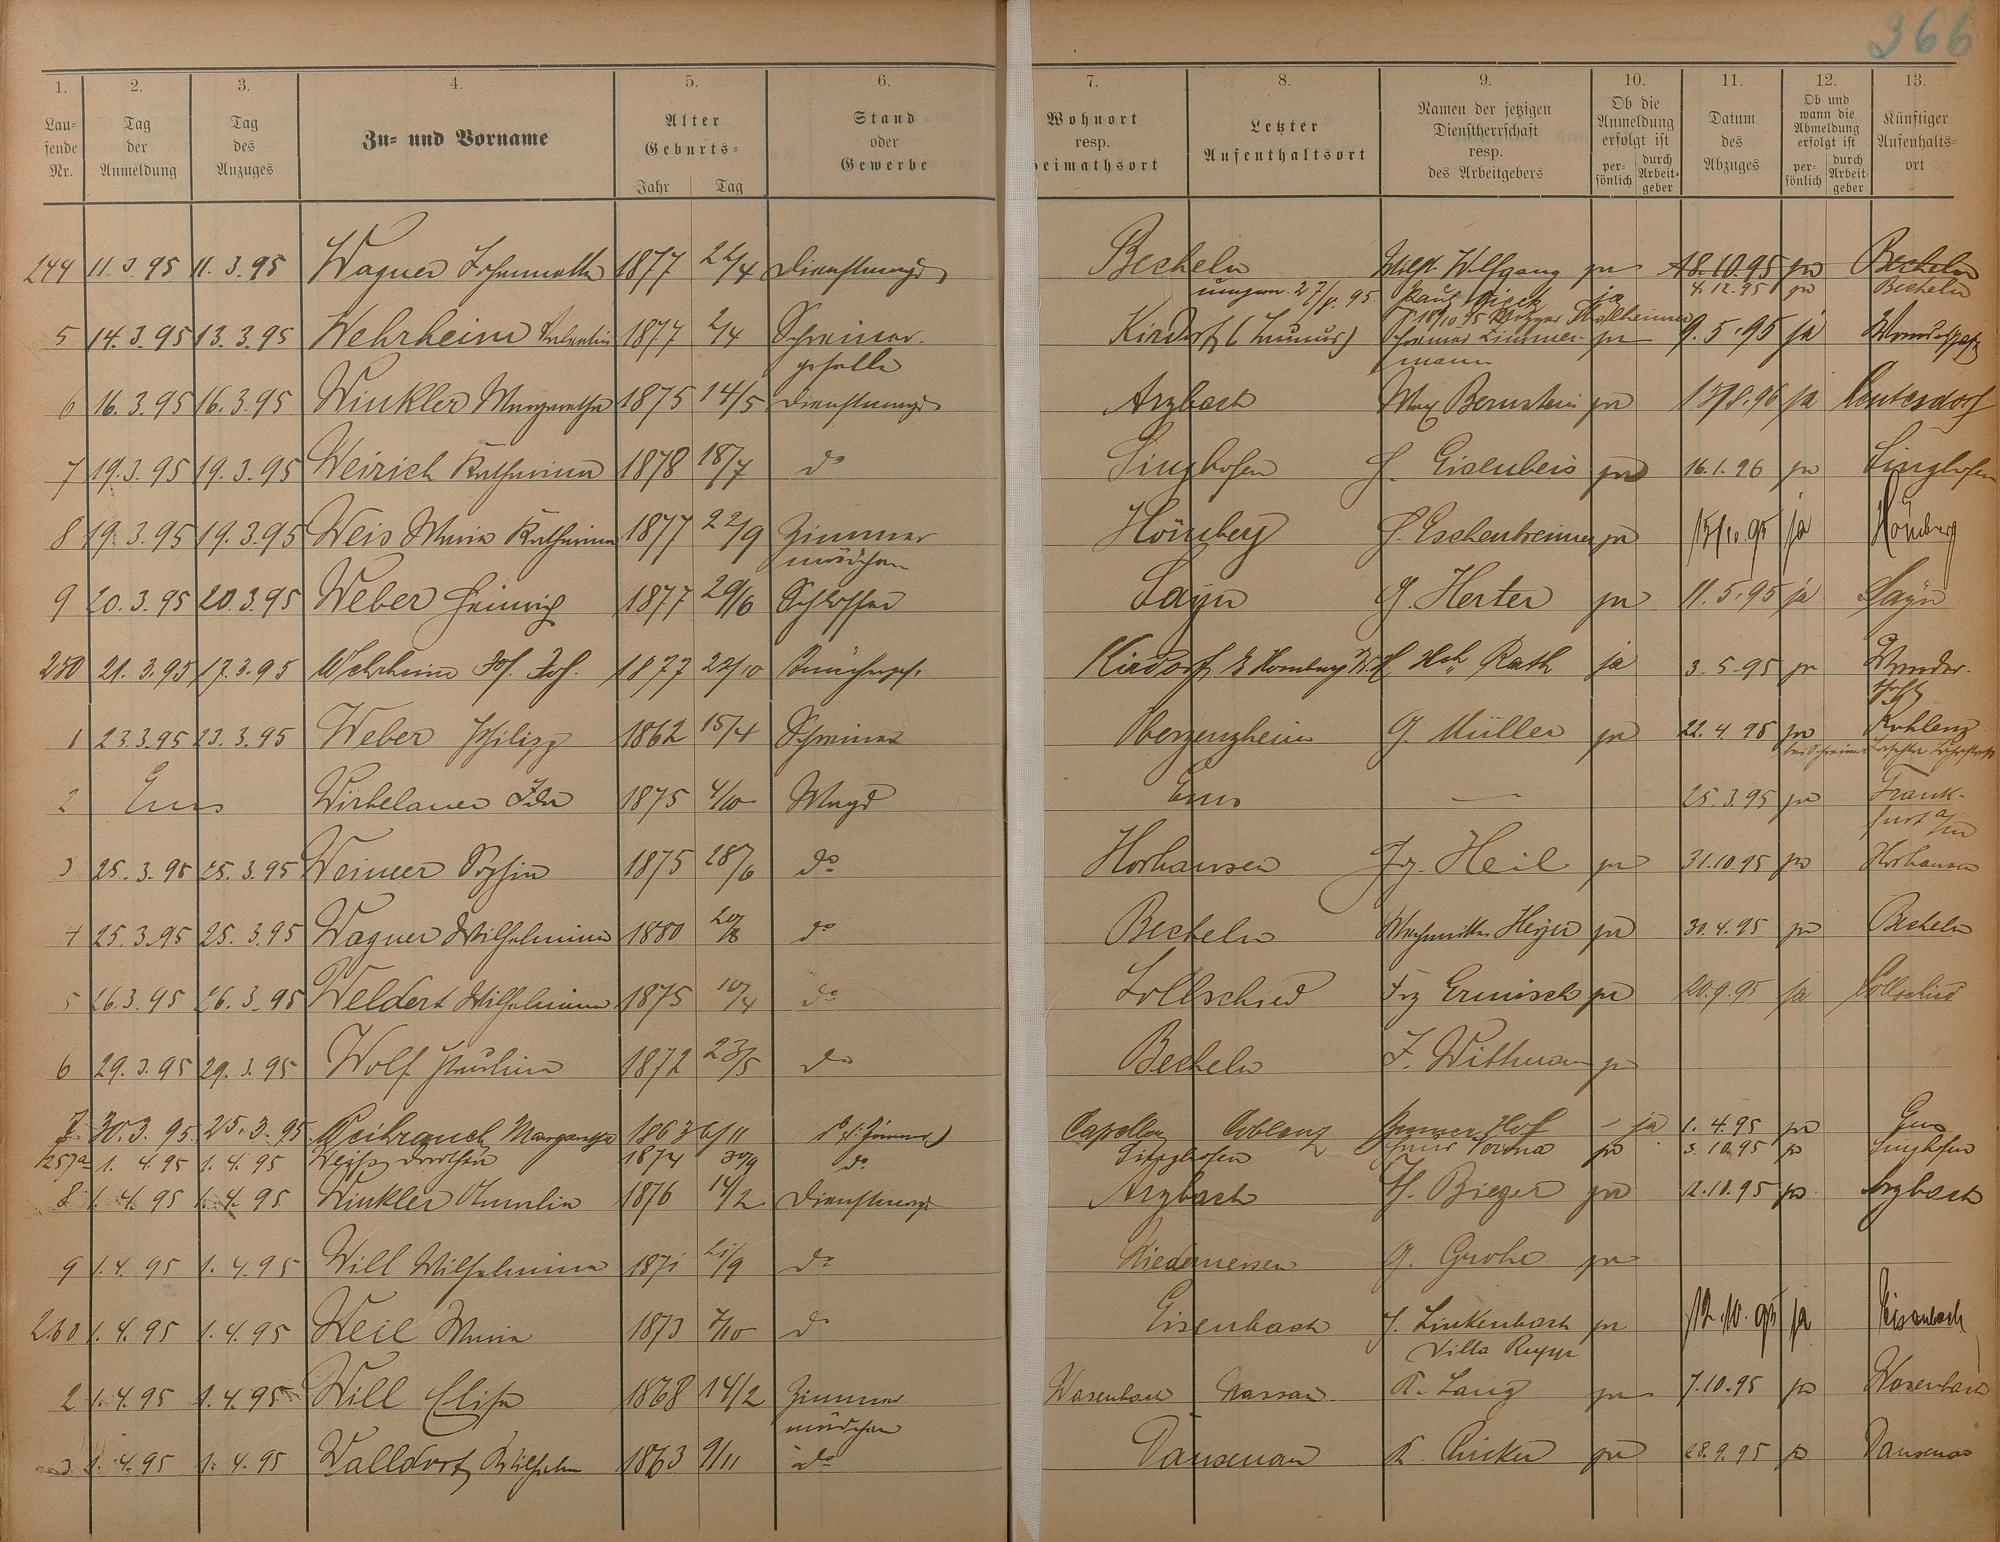 366
1. 2. 3. 4. 5. 6. 7. 8. 9. 10. 11. 12. 13.
Lau-
fende
Nr.
Tag
der
Anmeldung
Tag
des
Anzuges
Zu- und Vorname
Alter
Geburts-
Jahr Tag
Stand
oder
Gewerbe
Wohnort
resp.
Heimathsort
Letzter
Aufenthaltsort
Namen der jetzigen
Dienstherrschaft
resp.
des Arbeitgebers
Ob die
Anmeldung
erfolgt ist
per-
sönlich
durch
Arbeit-
geber
Datum
des
Abzuges
Ob und
wann die
Abmeldung
erfolgt ist
per-
sönlich
durch
Arbeit-
geber
Künftiger
Aufenthalts-
ort
244 11.3.95 11.3.95 Wagner 1877 22/4 Dienstmagd Becheln Wolfgang ja 18.10.95 ja Becheln
4.12.95 ja Becheln
5 14.3.95 13.3.95 Wehrheim Valentin 1877 2/4 Schreiner- Kirdorf (Taunus) Schreiner Zimmer- ja 9.5.95 ja Wanderschaft
geselle mann
6 16.3.95 16.3.95 Winkler Margaretha 1875 14/5 Dienstmagd Arzbach Max Bernstein ja ja
7 19.3.95 19.3.95 Weirich Katharina 1878 18/7 do Singhofen Eisenbeis ja 16.1.96 ja Singhofen
8 19.3.95 19.3.95 Weis Maria Katharina 1877 22/9 Zimmer Hömberg Eschenbrenner ja 15/10.95 ja Hömberg
mädchen
9 20.3.95 20.3.95 Weber Heinrich 1877 29/6 Schlosser Sayn G. Herter ja 11.5.95 ja Sayn
250 21.3.95 17.3.95 Wehrheim Joh. Jos. 1877 22/10 Kirdorf b Homburg v.d.H. Hch Rath ja 3.5.95 ja Wander-
schaft
1 23.3.95 23.3.95 Weber Philipp 1862 15/4 Schreiner Oberzeuzheim G. Müller ja 22.4.95 ja Koblenz
2 Ems Wirbelauer Ida 1875 4/10 Magd Ems — 25.3.95 ja Frank-
furt a/m
3 25.3.95 25.3.95 Weimer Sophie 1875 28/6 do Horhausen Heil ja 31.10.95 ja Horhausen
4 25.3.95 25.3.95 Wagner Wilhelmina 1880 do Becheln Heyer ja 30.4.95 ja Becheln
5 26.3.95 26.3.95 Weldert Wilhelmina 1875 10/4 do Lollschied Frz Ermisch ja 20.9.95 ja Lollschied
6 29.3.95 29.3.95 Wolf Paulina 1872 23/5 do Becheln F. Wittman ja
7 30.3.95 25.3.95 Weihrauch Margaretha 1863 6/11 Capellen Coblenz Hof - ja 1.4.95 ja Ems
257a 1.4.95 1.4.95 Weiß Dorothea 1874 30/9 do. Singhofen Verona ja 3.10.95 ja Singhofen
8 1.4.95 1.4.95 Winkler Amalie 1876 14/2 Dienstmagd Arzbach H. Bieger ja 12.10.95 ja Arzbach
9 1.4.95 1.4.95 Will Wilhelmina 1871 21/9 do Niederneisen G. Grohe ja
260 1.4.95 1.4.95 Weil Maria 1873 7/10 do Eisenbach J. Linkenbach ja 12.10.95 ja Eisenbach
Villa Rupp
2 1.4.95 1.4.95 Will Elise 1868 14/2 Zimmer Wasenbach Nassau K. Lang ja 7.10.95 ja Wasenbach
mädchen
3 1.4.95 1.4.95 Walldorf Wilhelm 1863 9/11 do Dausenau K. Rücker ja 28.9.95 ja Dausenau